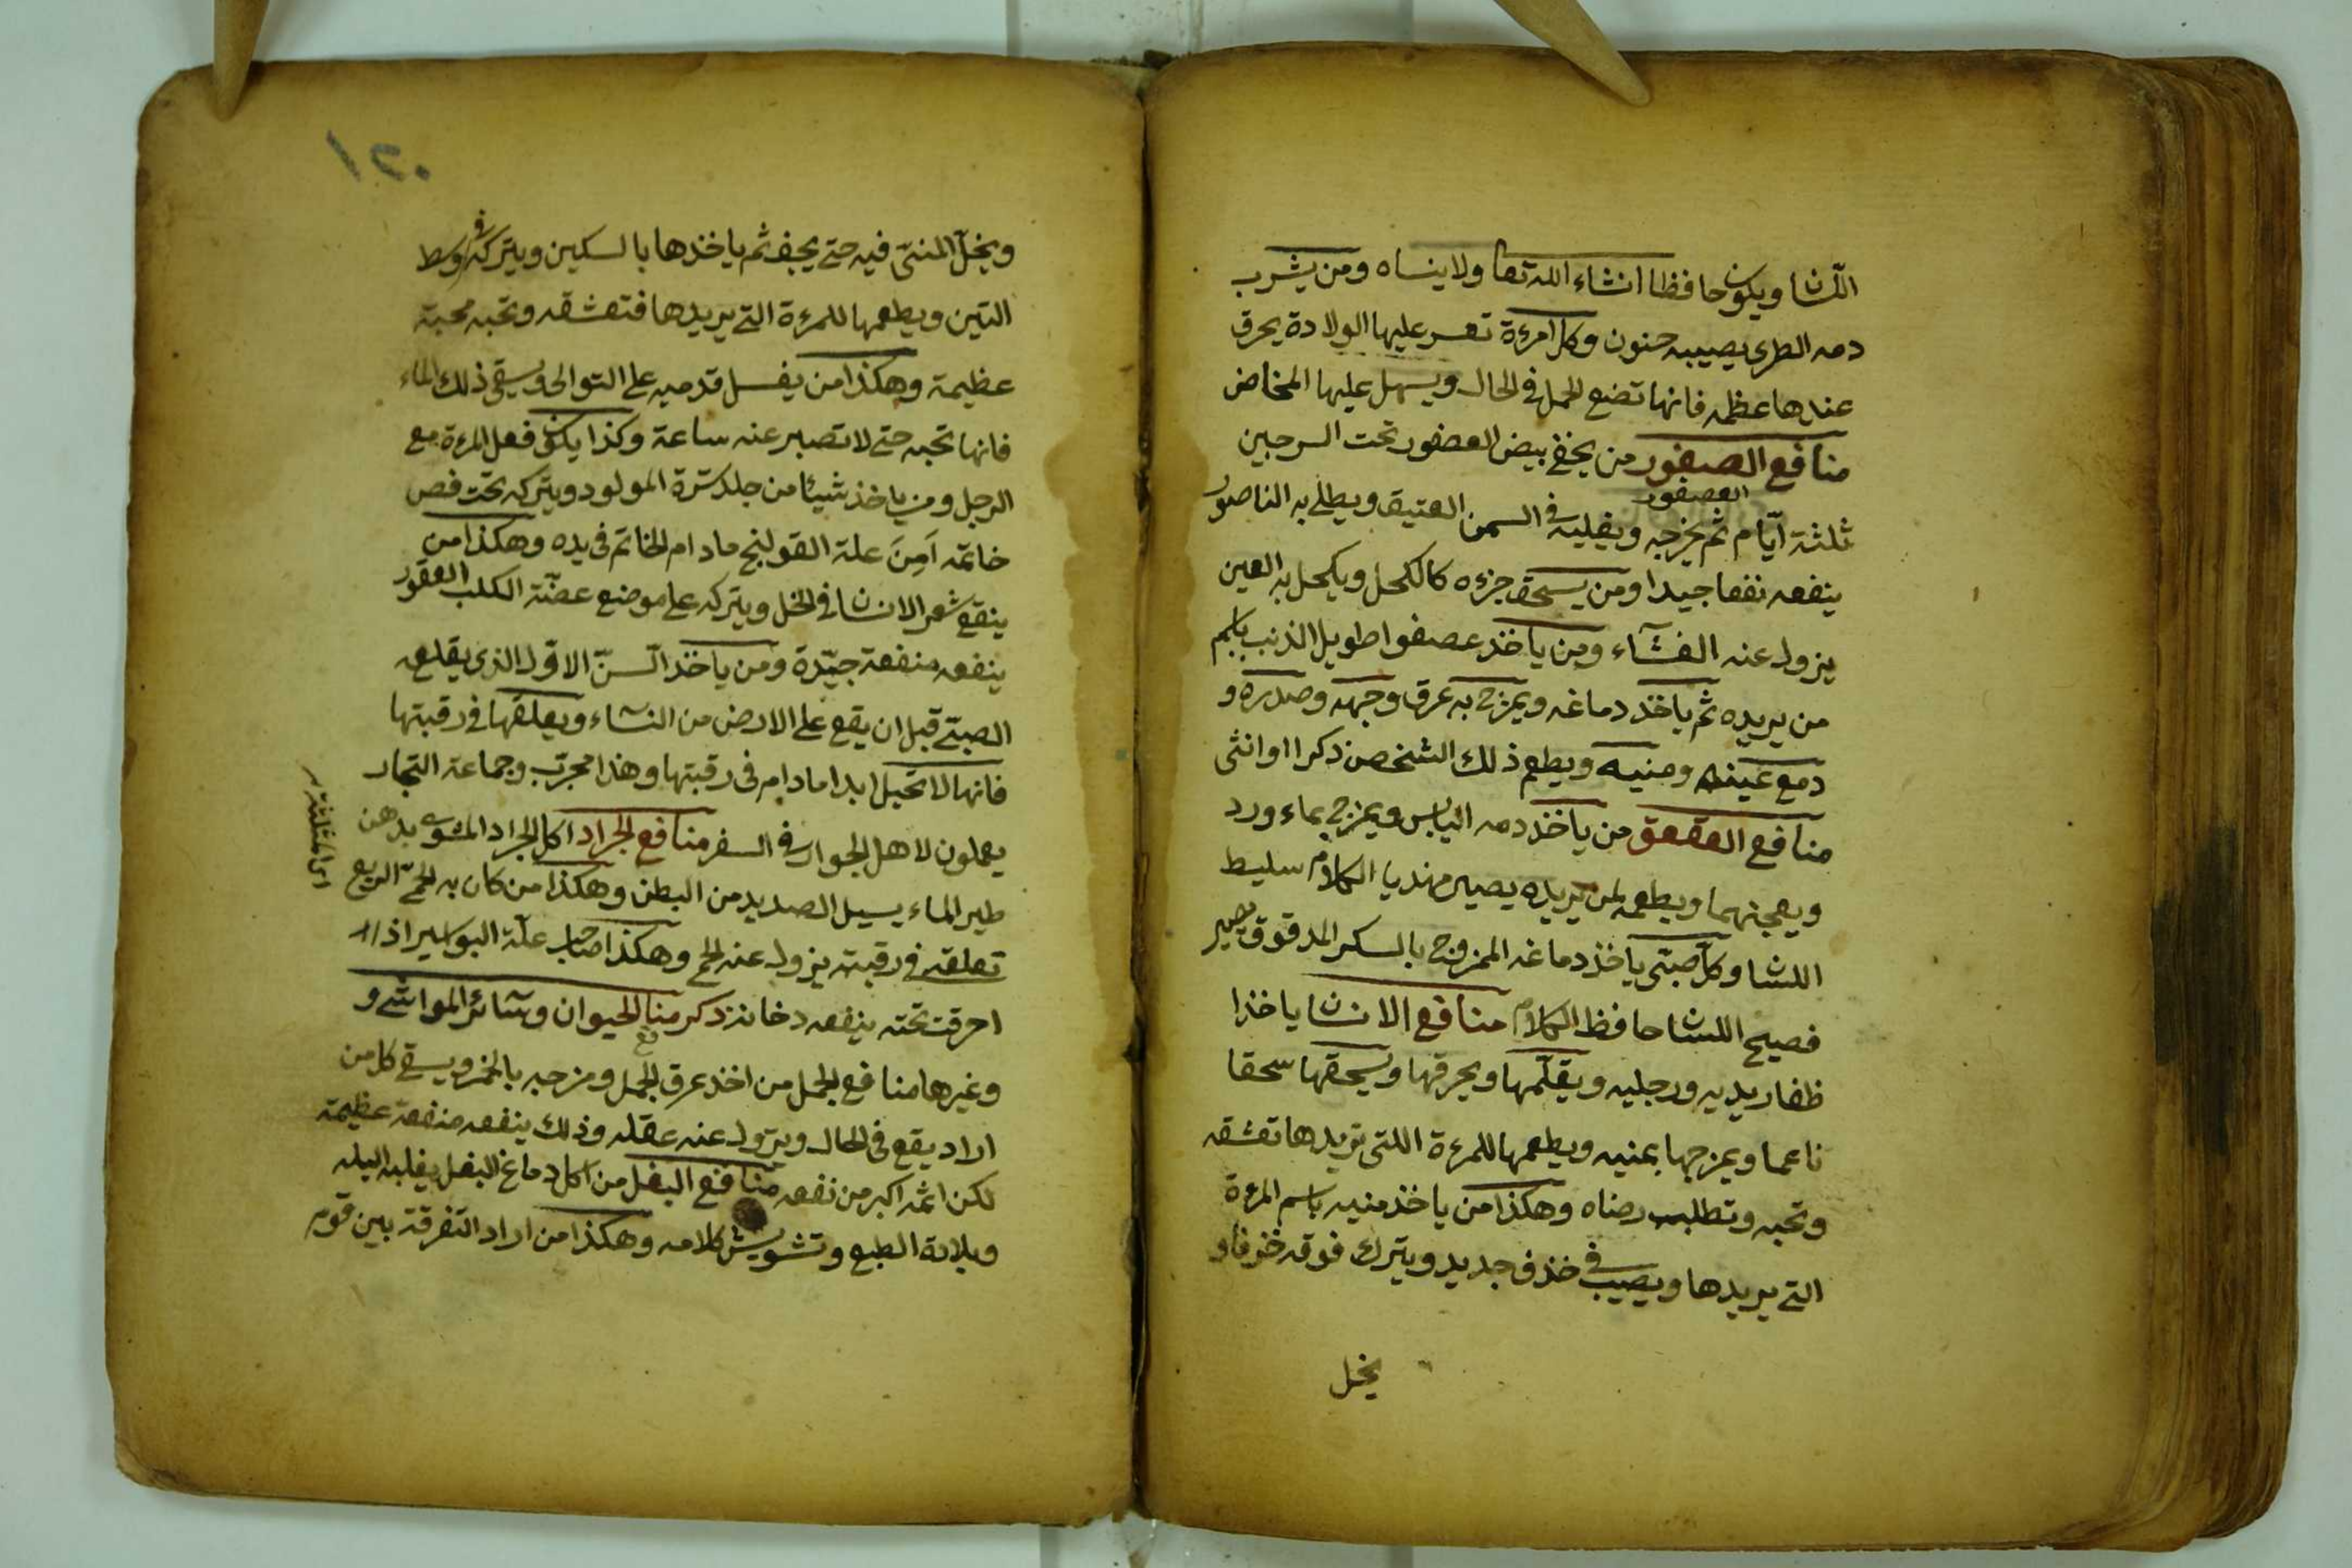 اللسان ويكون حافظا انشاء الله تعا ولا ينساه ومن يشرب
دمه الطرى يصيبه جنون وكل امرءة تعسر عليها الولادة يحرق
عندها عظمه فانها تضع الحمل فى الحال ويسهل عليها المخاض
منافع الصيفور من يخفى بيض العصفور تحت السرجين
العصفور
ثلثة ايّام ثم يخرجه ويغليه فى السمن العتيق ويطلى به الناصور
ينفعه نفعا جيدا ومن يسحق جزءه كالكحل ويكحل به العين
يزول عنه الغشاء ومن ياخذ عصفوا طويل الذنب باسم
من يريده ثم ياخذ دماغه ويمزج به عرق وجهه وصدره و
دمع عينه ومنيه ويطعم ذلك الشخص ذكرا او انثى
منافع العقعق من ياخذ دمه اليابس ويمزج بماء ورد
ويعجنهما ويطعمه لمن يريده يصير مهذيا الكلام سليط
اللسان وكل صبّى ياخذ دماغه الممزوج بالسكر المدقوق يصير
فصيح اللسان حافظ الكلام منافع الانسان ياخذ ا
ظفار يديه ورجليه ويقلّمها ويحرقها ويسحقها سحقا
ناعما ويمزجها بمنيه ويطعمها للمرءة اللتى تريدها تعشقه
وتحبه وتطلب رضاه وهكذا من ياخذ منيه باسم المرءة
التى يريدها ويصيب فى خذف جديد ويترك فوقه خزفا و
يخل
ويخلّ المنىّ فيه حتى يجف ثم ياخذها بالسكين ويتركه فى وسط
التين ويطعمها للمرءة التى يريدها فتعشقه وتحبه محبة
عظيمة وهكذا من يغسل قدميه على التوالى ويسقى ذلك الماء
فانها تحبه حتى لا تصبر عنه ساعة وكذا يكون فعل المرءة مع
الرجل ومن ياخذ شيئا من جلد سرّة المولود ويتركه تحت فص
خاتمه اَمِنَ علة القولنج مادام الخاتم فى يده وهكذا من
ينقع شعر الانسان فى الخل ويتركه على موضع عضّة الكلب العقور
ينفعه منفعة جيّدة ومن ياخذ السنّ الاوّل الذى يقلعه
الصبّى قبل ان يقع على الارض من النساء ويعلقها فى رقبتها
فانها لا تحبل ابدا مادام فى رقبتها وهذا مجرّب وجماعة التجار
يعملون لاهل الجوار فى السفر منافع الجراد اكل الجراد المشوى بدهن
طير الماء يسيل الصديد من البطن وهكذا من كان به الحمّى الربع
تعلقه فى رقبته يزول عنه الحمى وهكذا صاحب علّة البواسير اذا
احرقت تحته ينفعه دخانه ذكر منافع الحيوان وسائر المواشى و
وغيرها منافع الجمل من اخذ عرق الجمل ومزجه بالخمر ويسقى كل من
اراد يقع فى الحال ويزول عنه عقله وذلك ينفعه منفعة عظيمة
لكن اثمه اكبر من نفعه منافع البغل من اكل دماغ البغل يغلبه البله
وبلادة الطبع وتشويش كلامه وهكذا من اراد التفرقة بين قوم